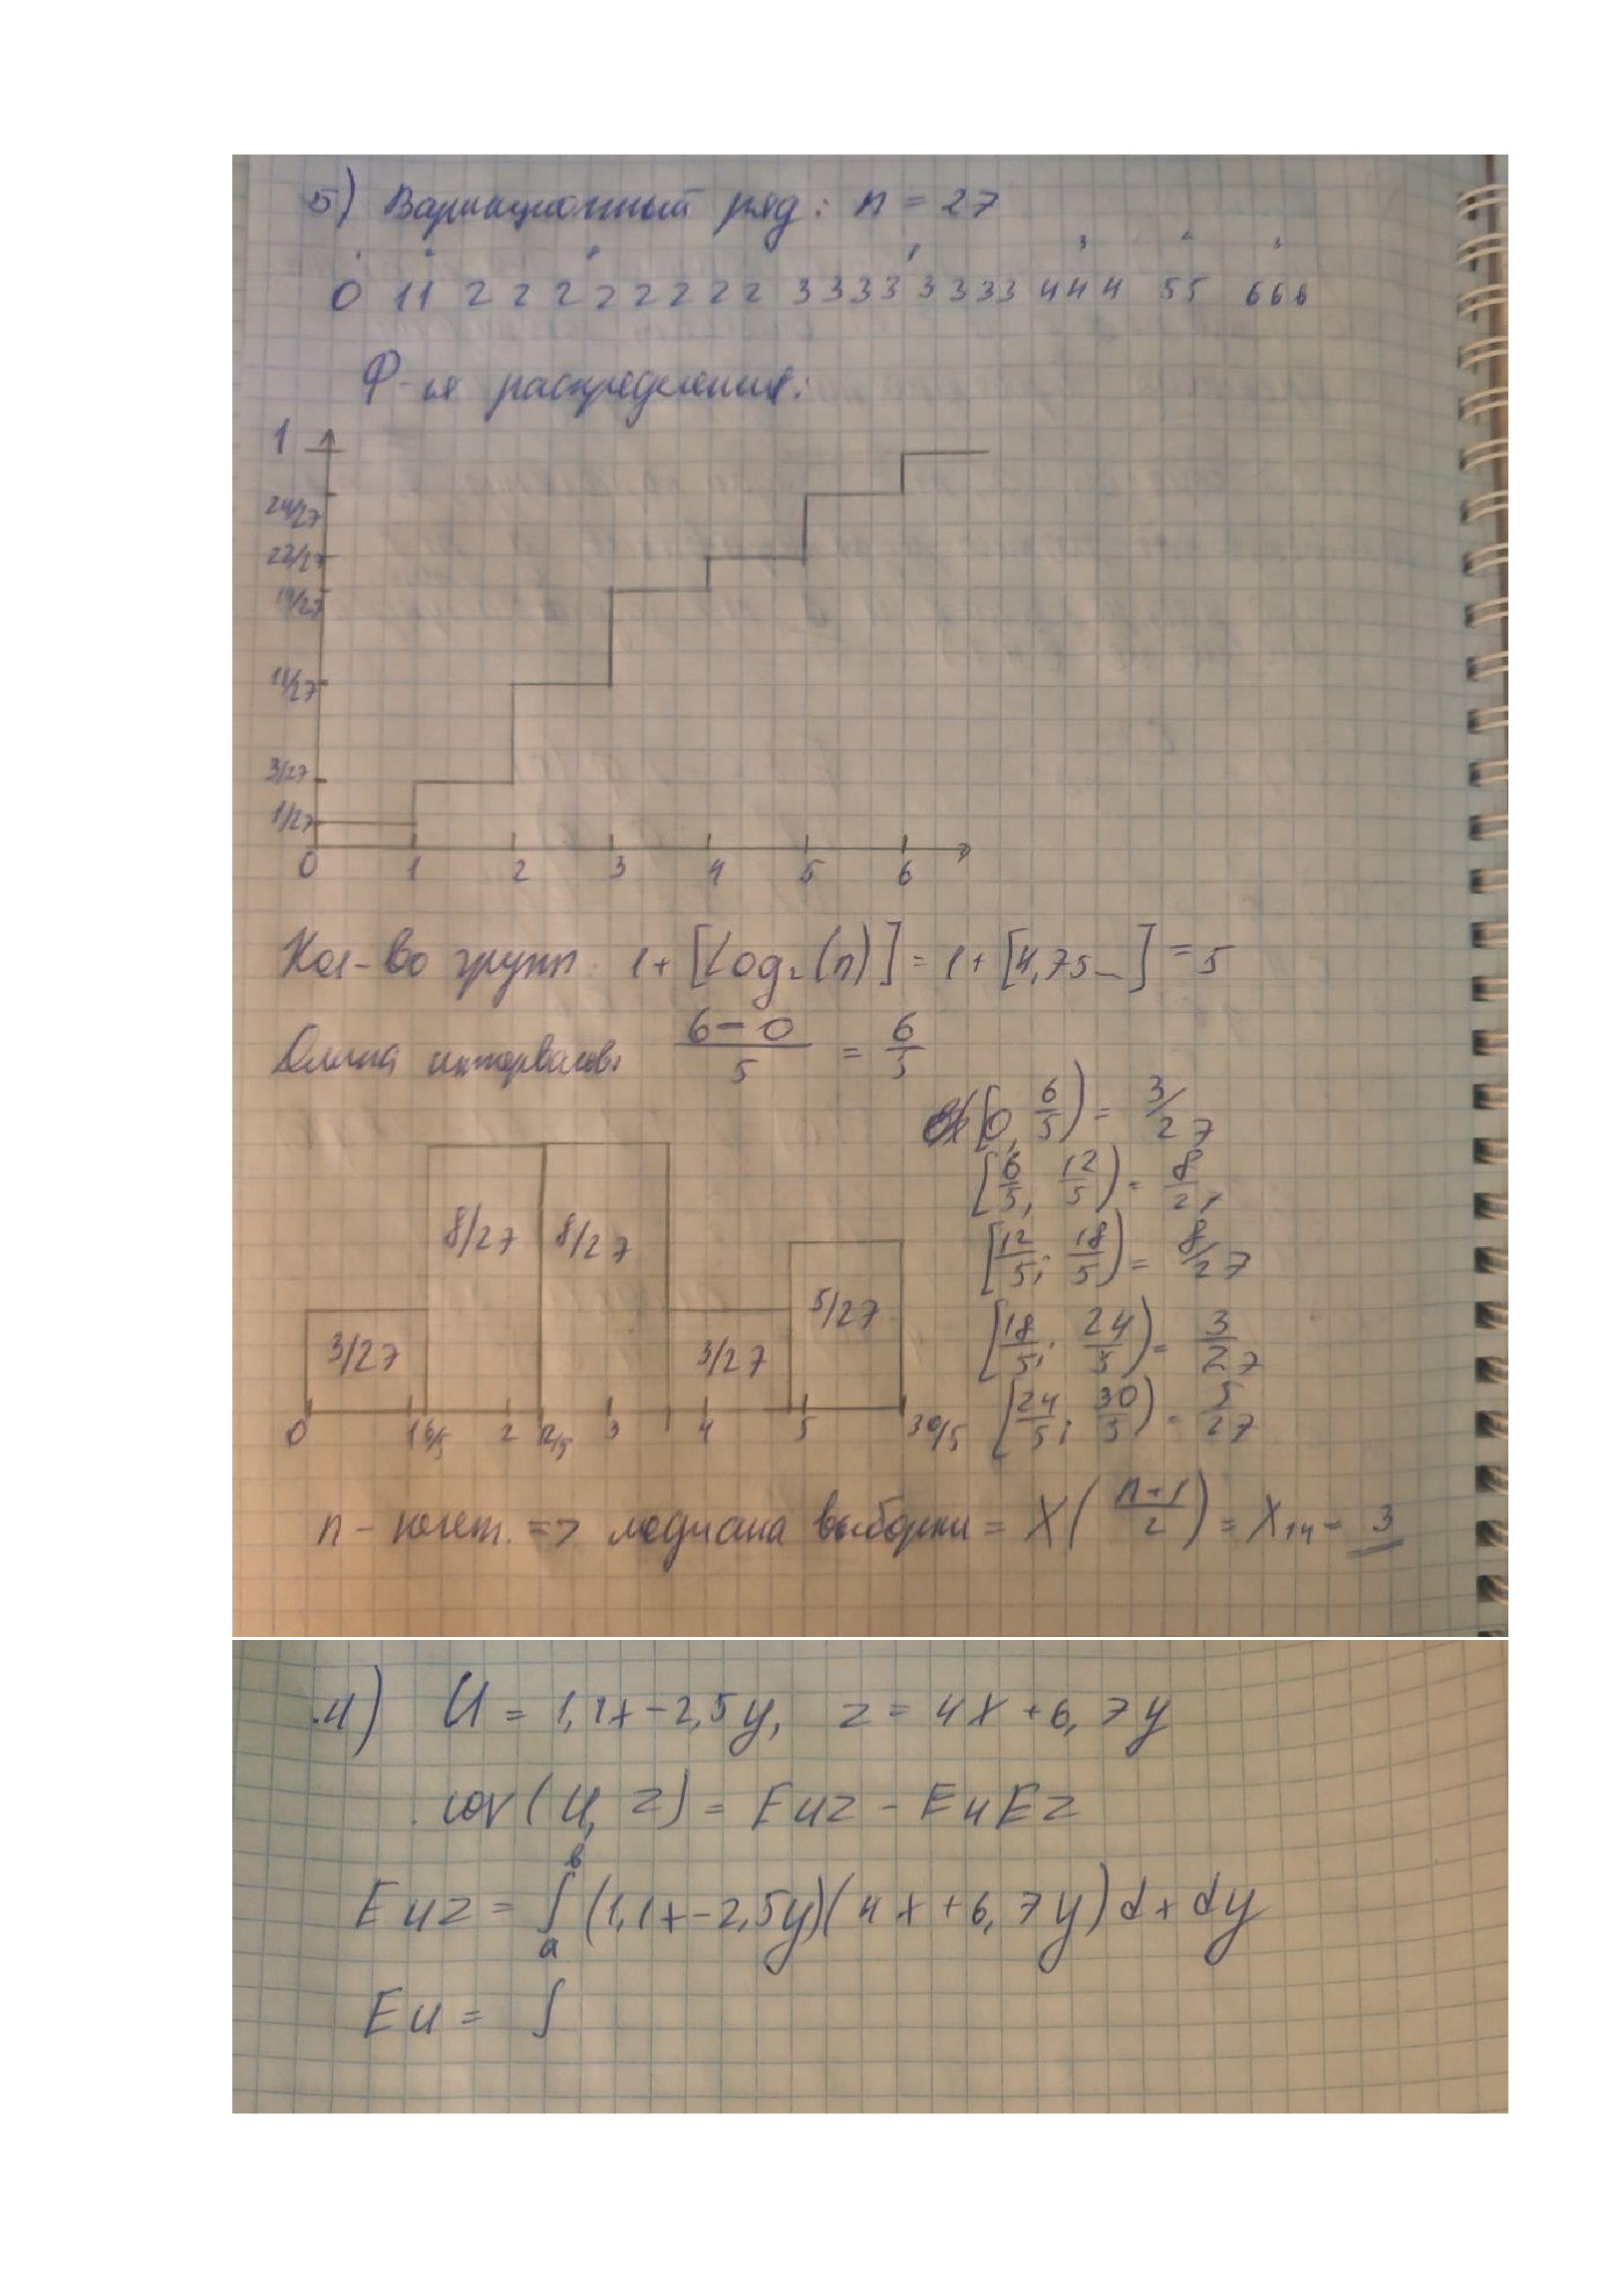 5) Вариационный ряд: n = 27
0 11 2 2 2 2 2 2 2 2 3 3 3 3 3 3 3 3 4 4 4 5 5 6 6 6
Ф-ия распределения:
1
24/27
22/27
19/27
11/27
3/27
1/27
0 1 2 3 4 5 6
Кол-во групп 1 + [log₂(n)] = 1 + [4,75...] = 5
Длина интервалов: (6 - 0)/5 = 6/5
[0, 6/5) = 3/27
[6/5, 12/5) = 8/27
[12/5; 18/5) = 8/27
[18/5; 24/5) = 3/27
[24/5; 30/5) = 5/27
8/27 8/27
5/27
3/27 3/27
0 1 6/5 2 12/5 3 4 5 30/5
n - нечет. => медиана выборки = X((n+1)/2) = X₁₄ = 3
4) U = 1,1x - 2,5y, z = 4x + 6,7y
cov(U, z) = Euz - EuEz
Euz = ∫ₐᵇ (1,1x - 2,5y)(4x + 6,7y)dxdy
Eu = ∫